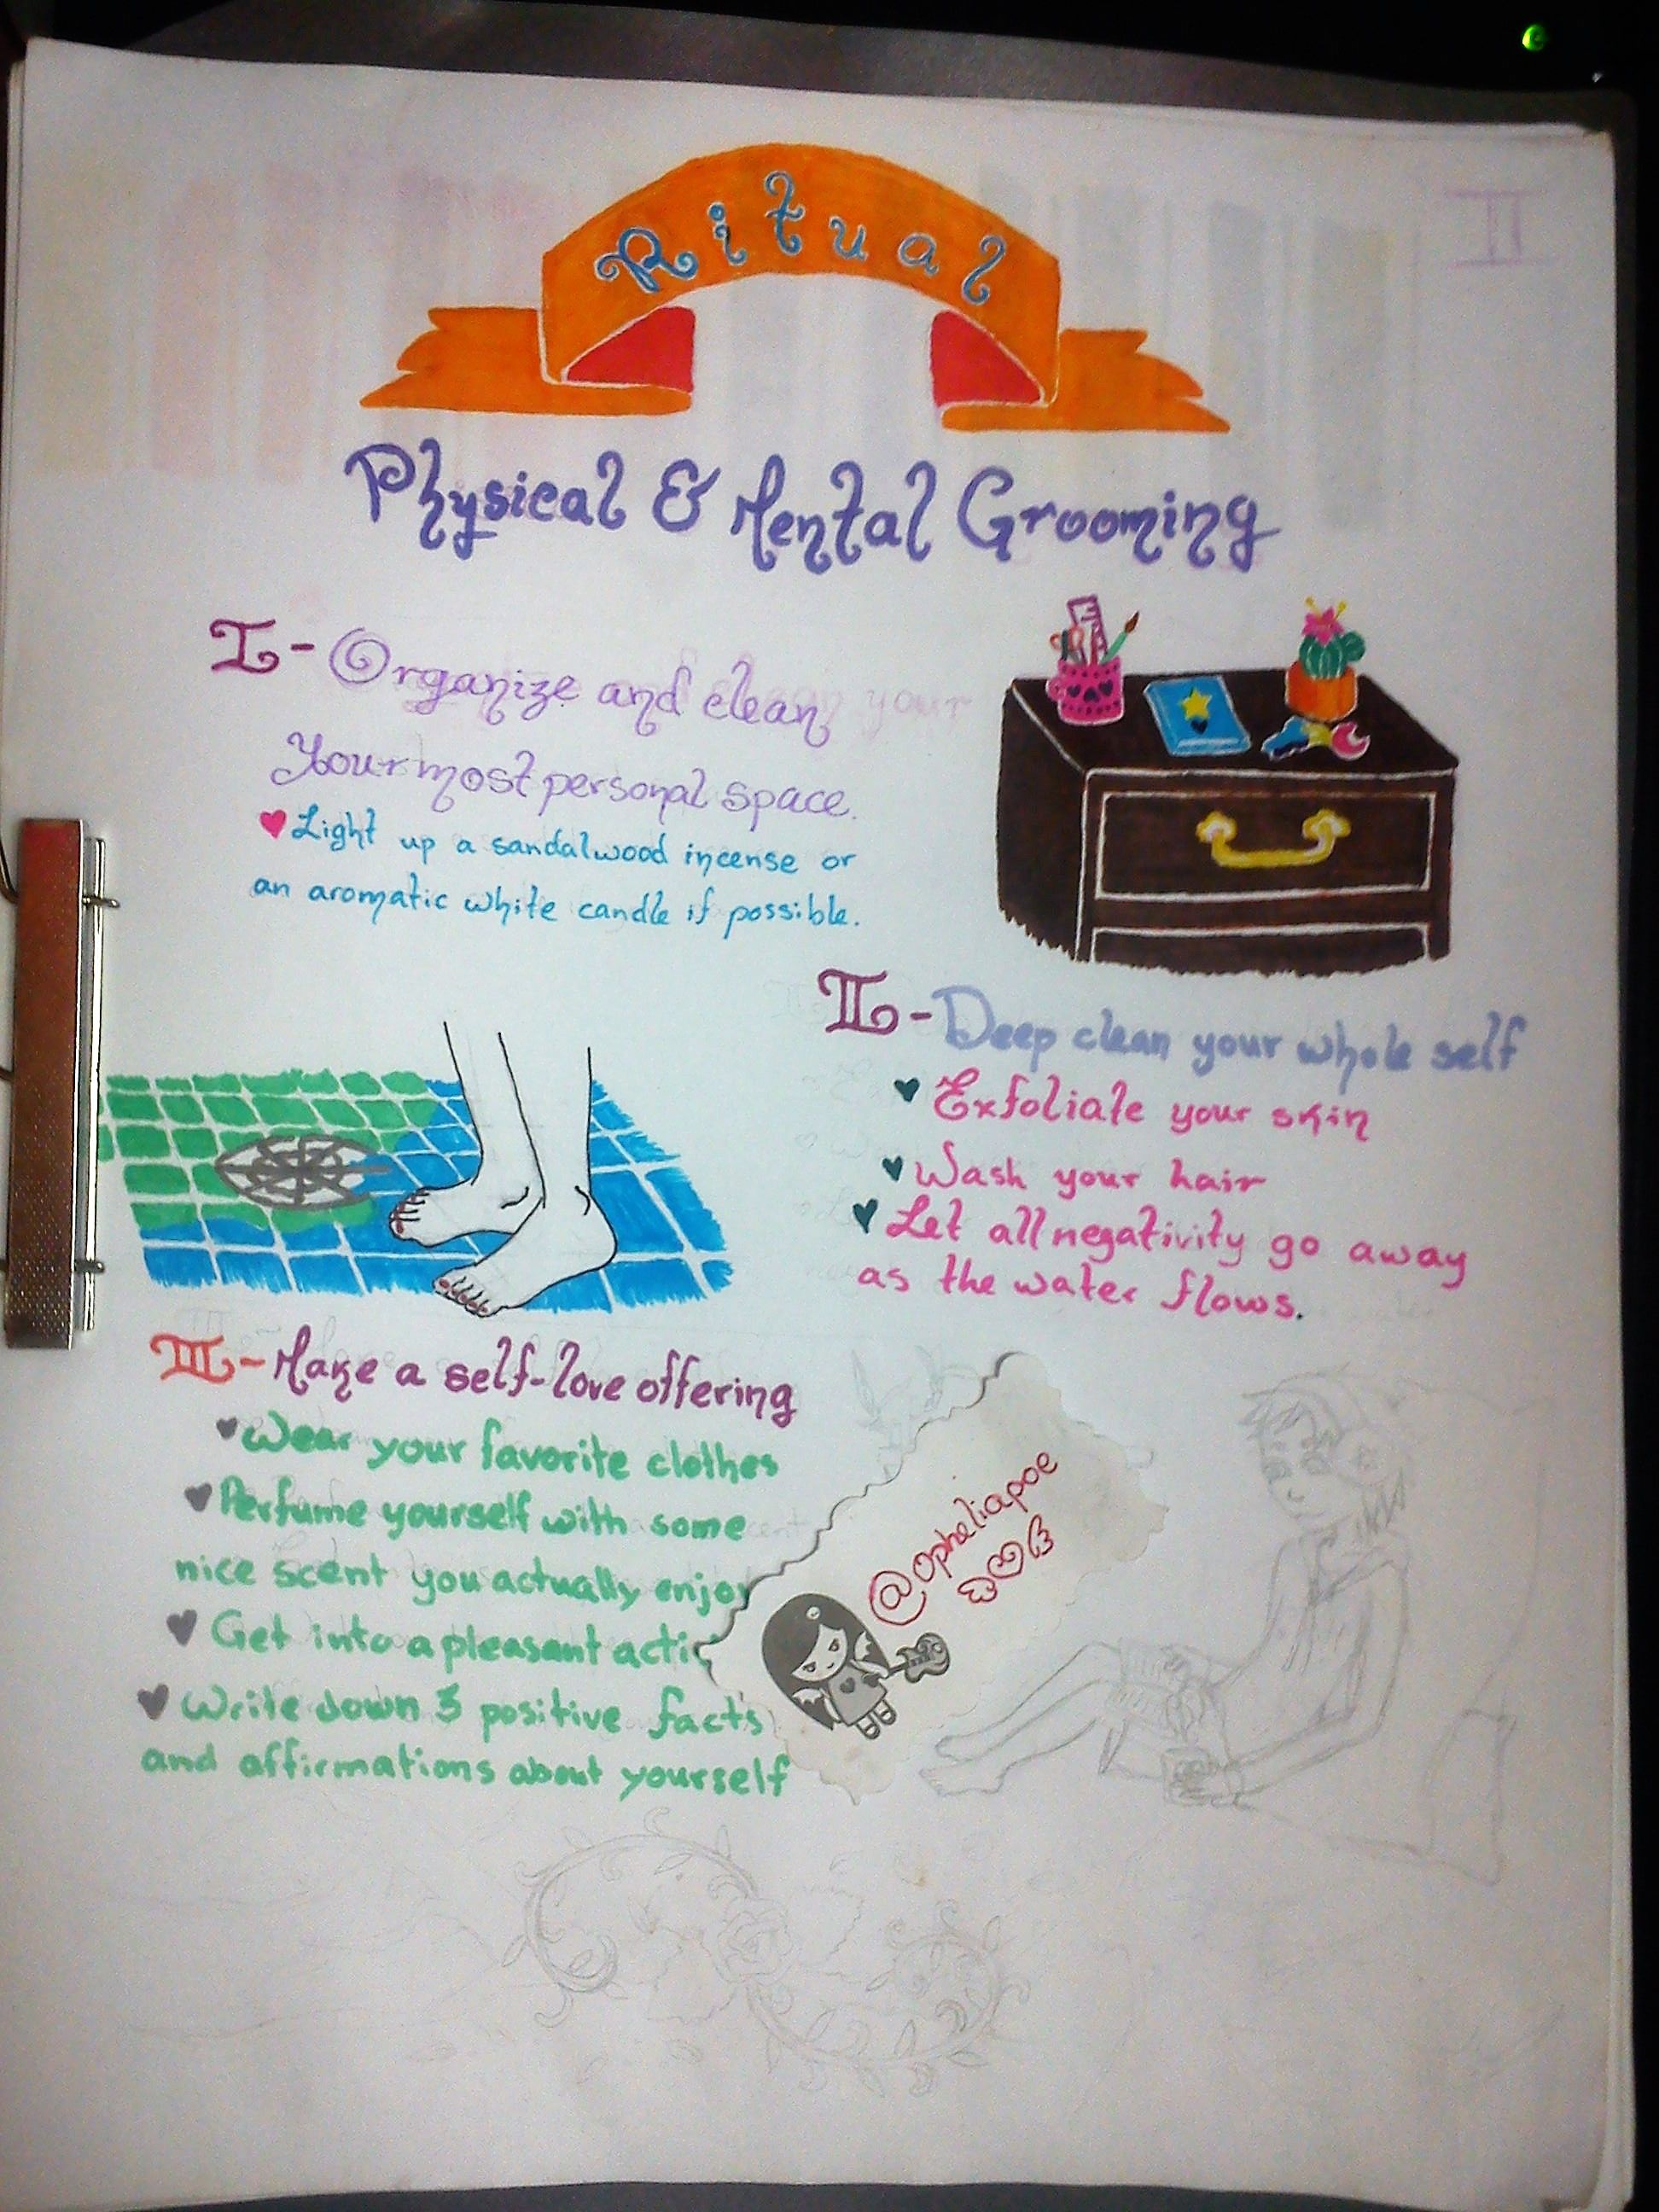 II
Ritual
Physical & Mental Grooming
I- Organize and clean
Your most personal space.
Light up a sandalwood incense or
an aromatic white candle if possible.
II- Deep clean your whole self
Exfoliate your skin
Wash your hair
Let all negativity go away
as the water flows.
III- Make a self-love offering
Wear your favorite clothes
Perfume yourself with some
nice scent you actually enjoy
Get into a pleasant
Write down 5 positive facts
and affirmations about yourself
@opheliapoe